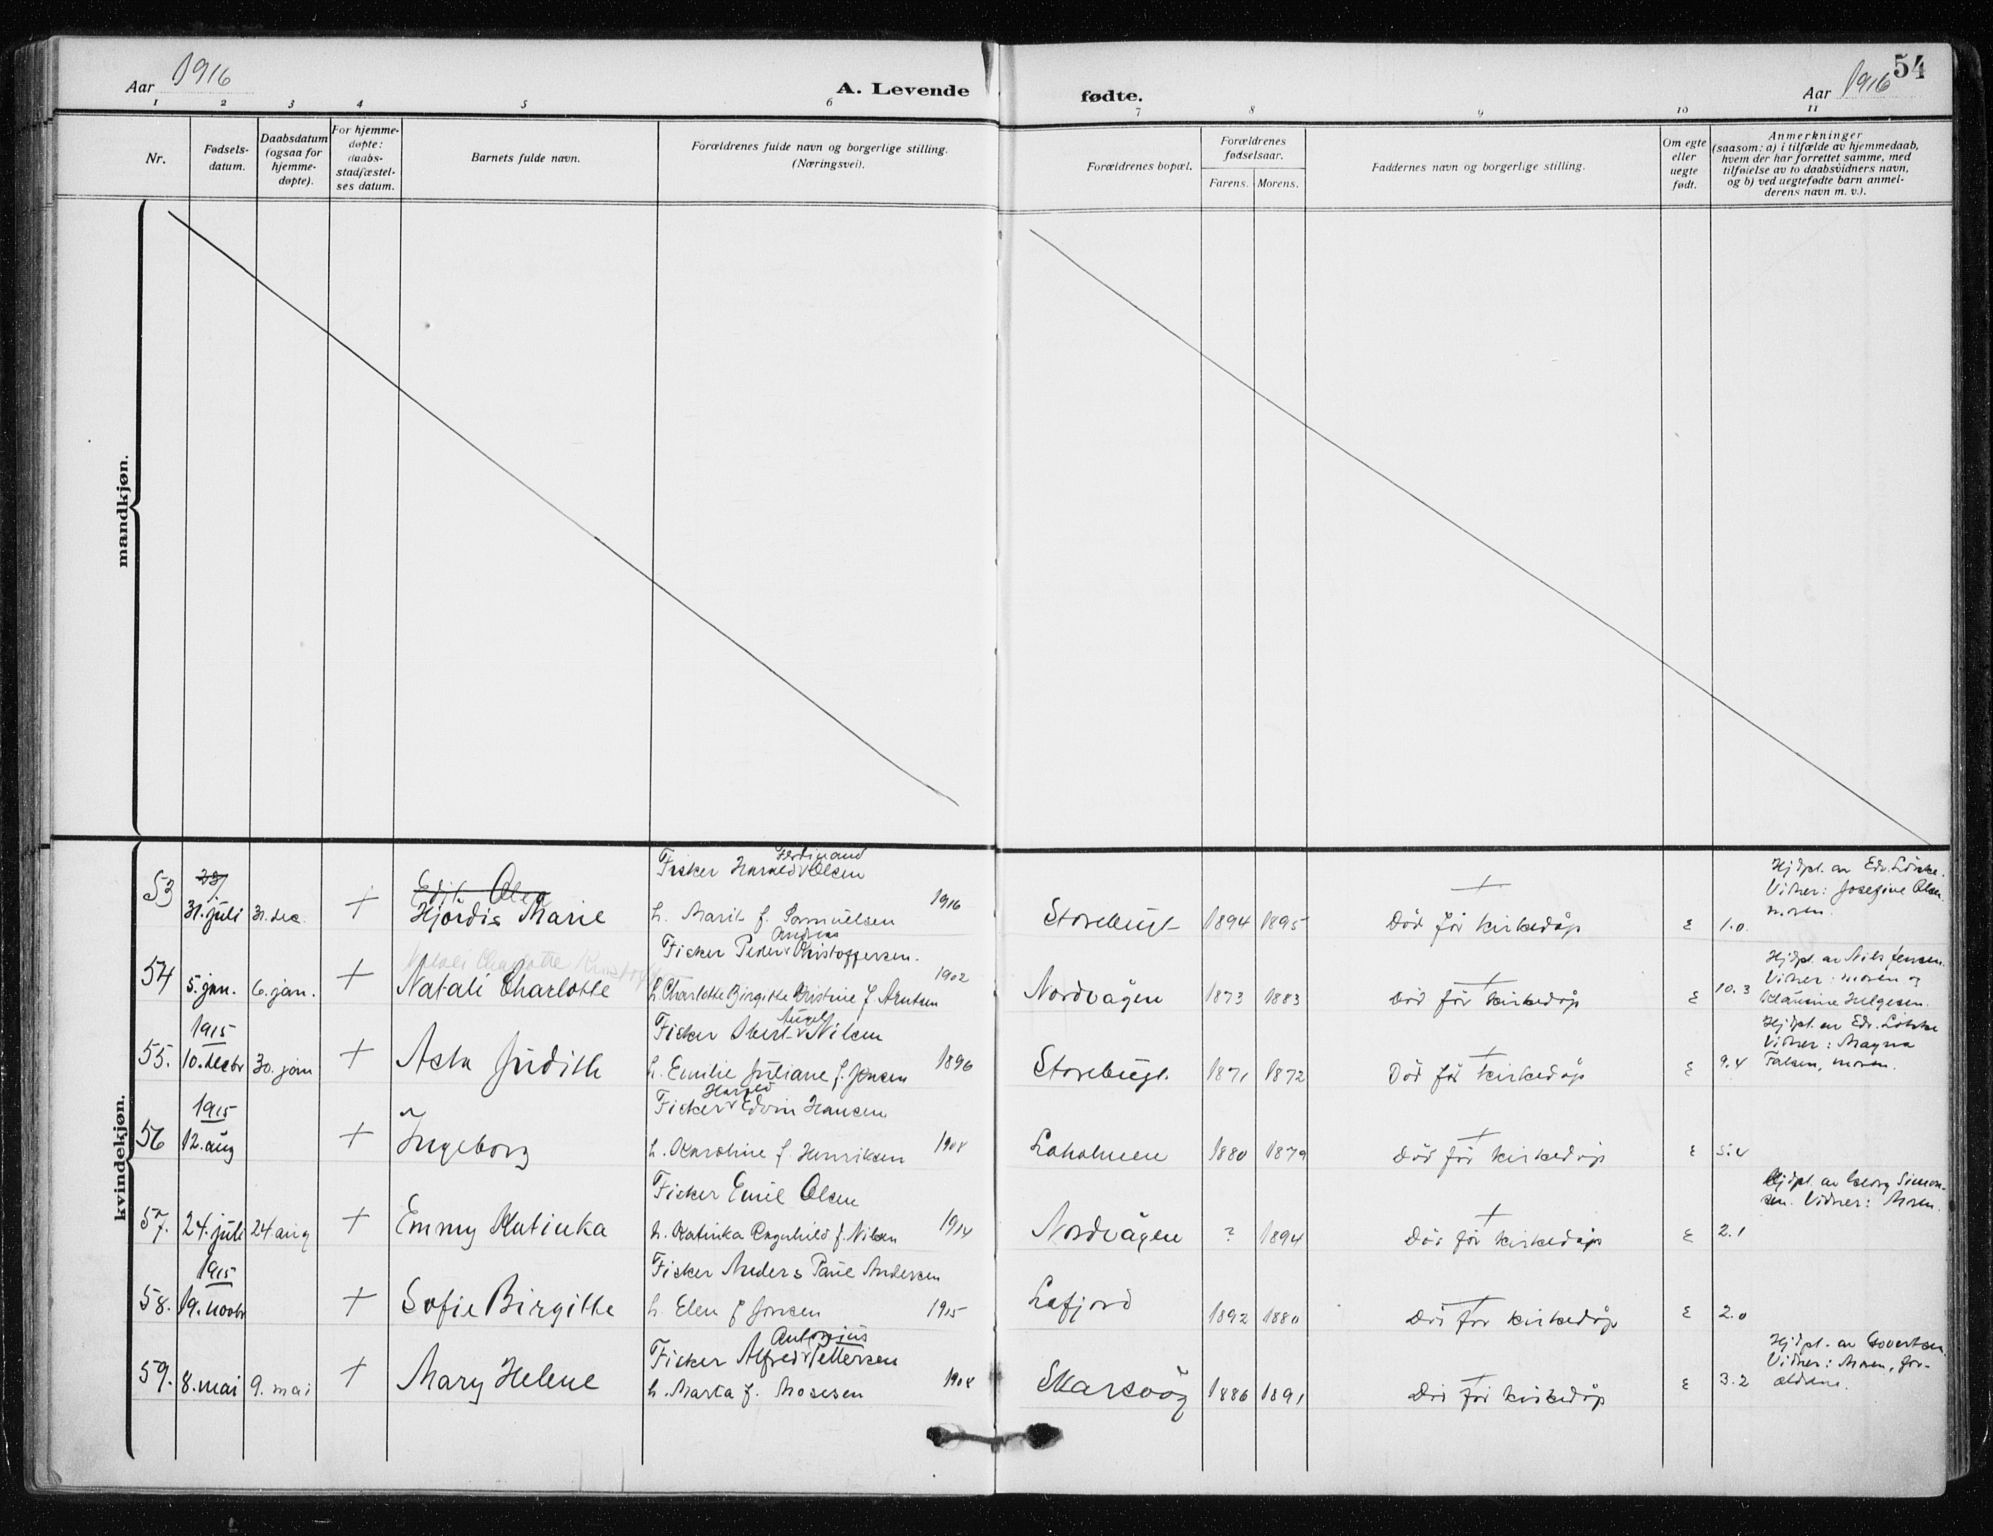 Aar 1916
A. Levende fødte.
Aar 1916
54
1 2 3 4 5 6 7 8 9 10 11
Nr.
Fødsels-
datum.
Daabsdatum
(ogsaa for
hjemme-
døpte).
For hjemme-
døpte:
daabs-
stadfæstel-
ses datum.
Barnets fulde navn.
Forældrenes fulde navn og borgerlige stilling.
(Næringsvei).
Forældrenes bopæl.
Forældrenes
fødselsaar.
Farens. Morens.
Faddernes navn og borgerlige stilling.
Om egte
eller
uegte
født.
Anmerkninger
(saasom: a) i tilfælde av hjemmedaab,
hvem der har forrettet samme, med
tilføielse av to daabsvidners navn,
og b) ved uegtefødte barn anmel-
derens navn m. v.).
mandkjøn.
kvindekjøn.
53
31. juli
31. dec.
+
Hjördis Marie
Fisker Harald Ferdinand Olsen
h. Marit f. Samuelsen
1916
Storebugt
1894 1895
+
Död för kirkedåp
ε
1.0
Hjdpt. av Edv. Lökke.
Vidner: Josefine Olsen
moren.
54
5. jan.
6. jan.
+
Natali Charlotte
Fisker Peder Andreas Kristoffersen.
h. Charlotte Birgitte Kristine f. Arntsen
1902
Nordvågen
1873 1883
+
Död för kirkedåp
ε
10.3
Hjdpt. av Nils Jensen.
Vidner: moren og
Klausine Helgesen.
55.
1915
10. decbr
30. jan
+
Asta Judith
Fisker Obert Angel Nilsen
h. Emilie Juliane f. Jensen
1896
Storebugt.
1871 1872
+
Död för kirkedåp
ε
9.4
Hjdpt. av Edv. Lökke
Vidner: Magna
Falsen, moren.
56
1915
12. aug
+
Ingeborg
Fisker Harald Edvin Hansen
h. Karoline f. Henriksen
1908
Laholmen
1880 1879
+
Död för kirkedåp
ε
5.4
57.
24. juli
24 aug
+
Emmy Katinka
Fisker Emil Olsen
h. Katinka Ragnhild f. Nilsen
1914
Nordvågen
? 1894
+
Död för kirkedåp
ε
2.1
Hjdpt. av Georg Simon-
sen. Vidner: Moren.
58.
1915
19. novbr
+
Sofie Birgitte
Fisker Anders Paul Andersen
h. Elen f. Jonsen
1915
Lafjord
1892 1880
+
Död för kirkedåp
ε
2.0
59.
8. mai
9. mai
+
Mary Helene
Fisker Alfred Antonius Pettersen
h. Marta f. Mosesen
1908
Skarsvåg
1886 1891
Död för kirkedåp
ε
3.2
Hjdpt. av Govertsen.
Vidner: Moren, for-
ældrene.